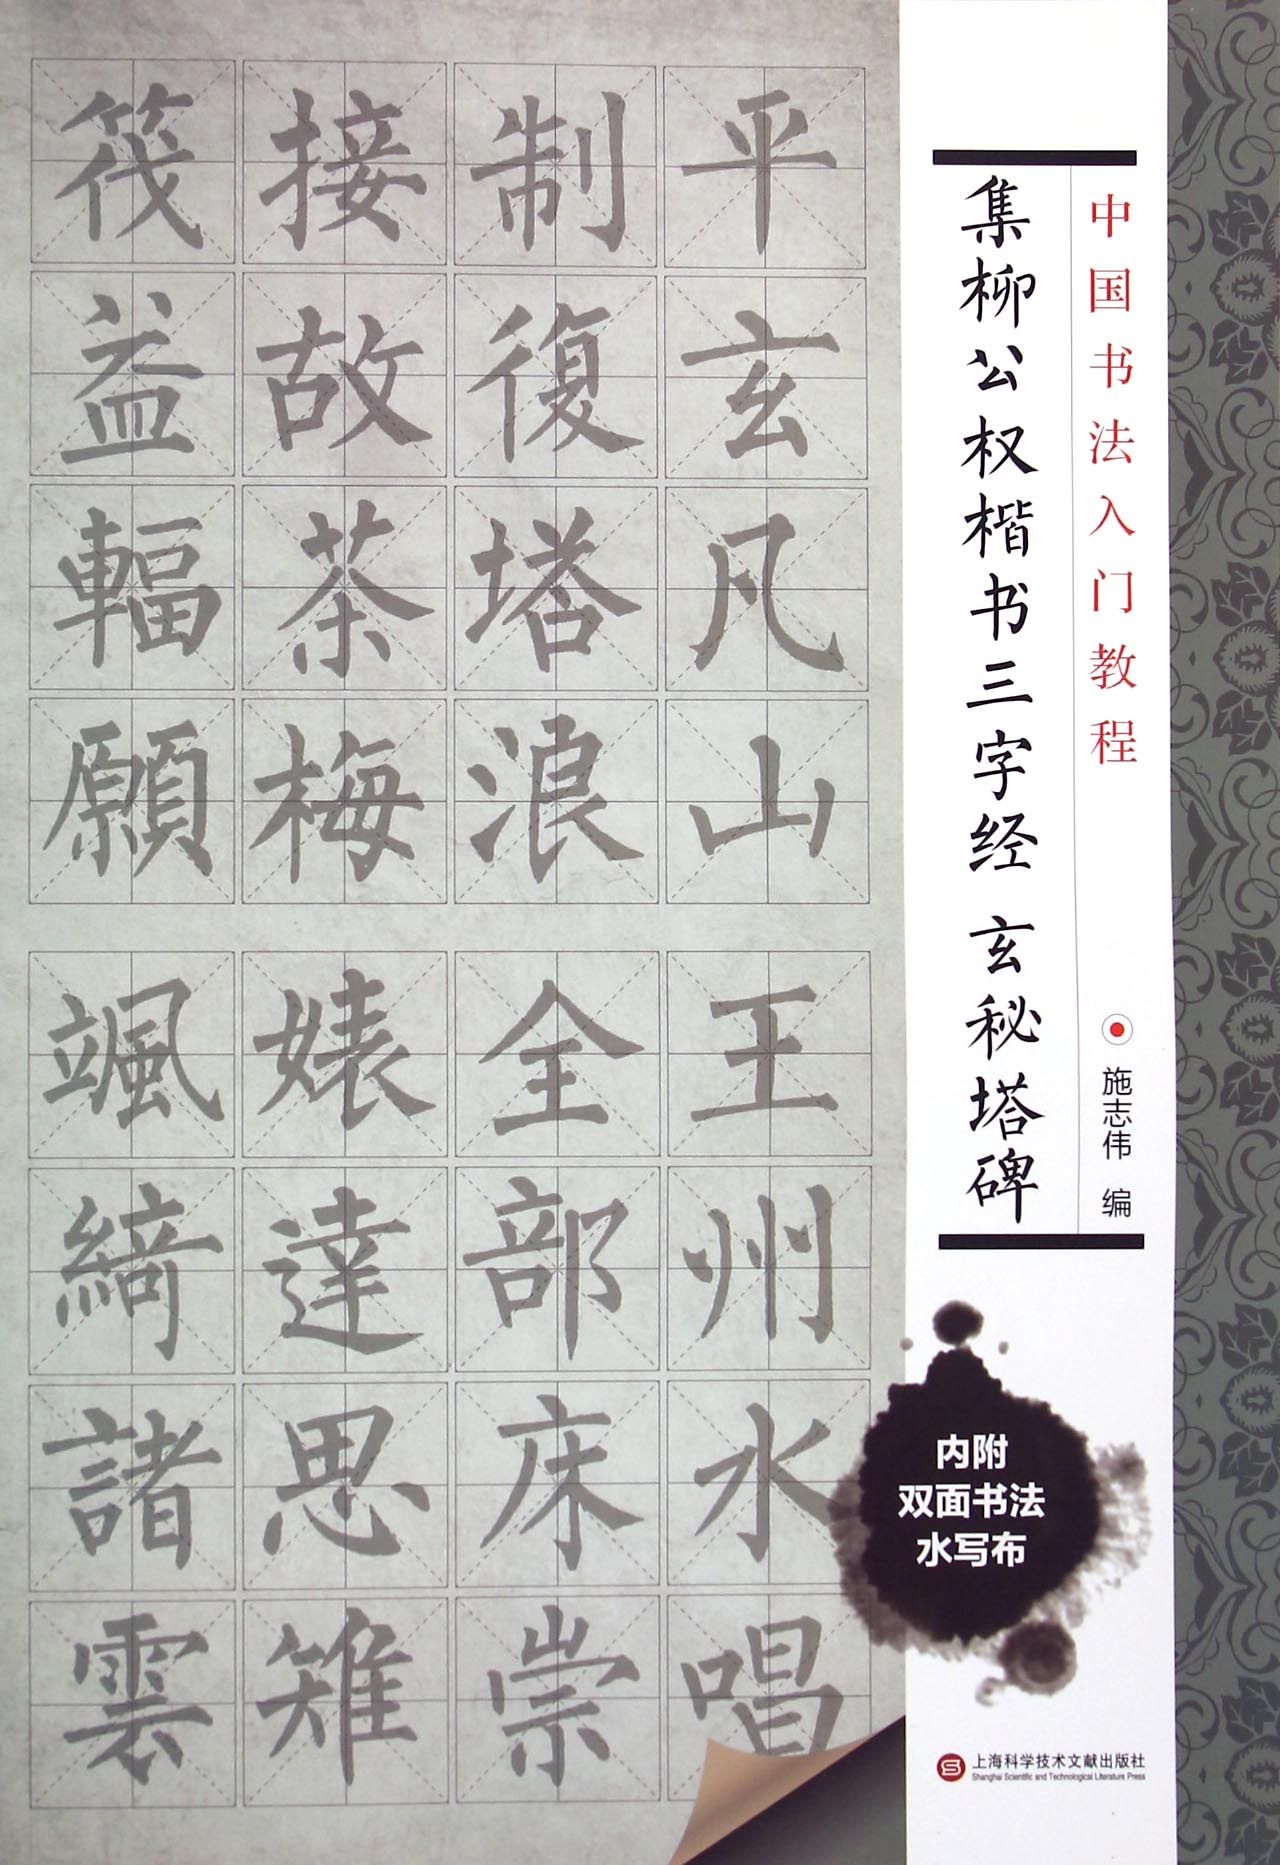 中国书法入门教程
集柳公权楷书三字经 玄秘塔碑
施志伟 编
平玄凡山王州水唱
制復塔浪全部床崇
接故茶梅婊達思雉
筏益輻願颯綺諸雲
内附
双面书法
水写布
上海科学技术文献出版社
Shanghai Scientific and Technological Literature Press